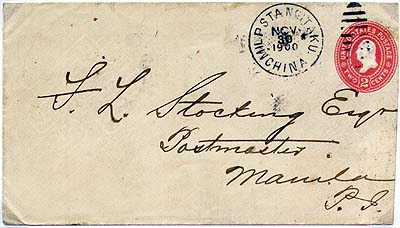 MIL. P. STA. NO. 1. TONGKU.
NOV
30
1900
CHINA
UNITED STATES POSTAGE
TWO 2 CENTS
F. L. Stocking Esqr
Postmaster
Manila
P. I.